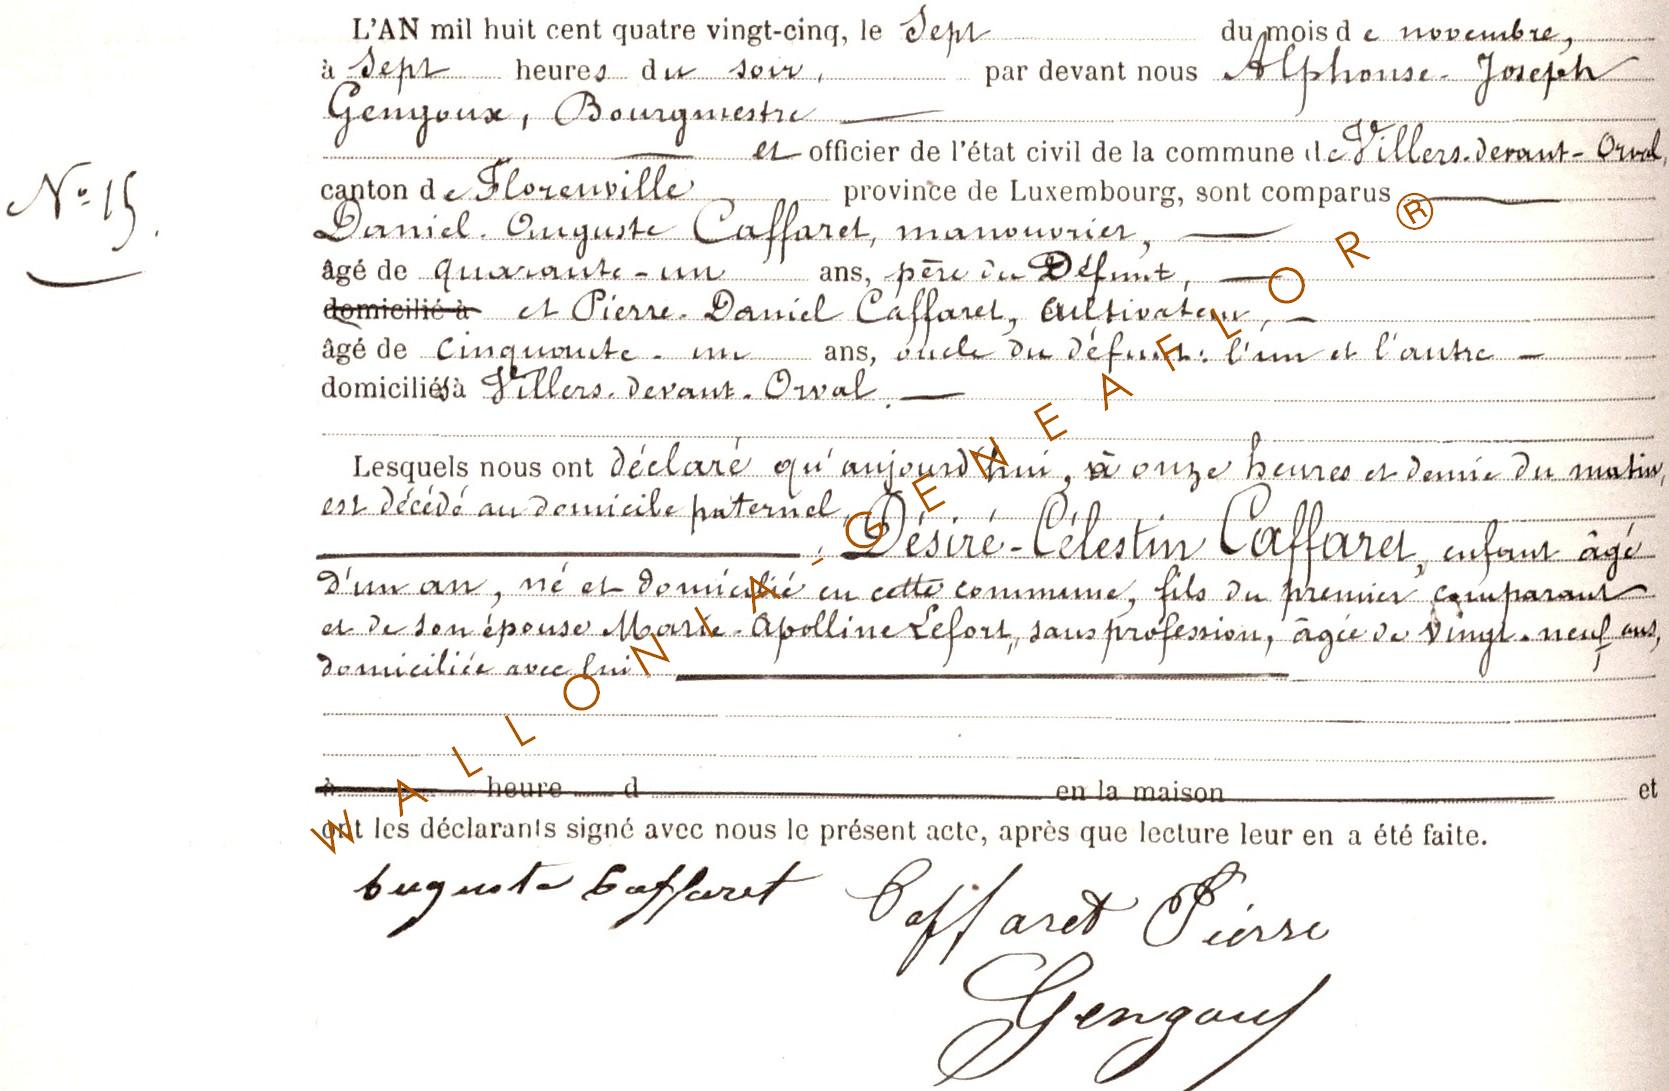 L'AN mil huit cent quatre vingt-cinq, le Sept du mois de novembre,
à Sept heures du soir, par devant nous Alphonse-Joseph
Gengoux, Bourgmestre
et officier de l'état civil de la commune de Villers-devant-Orval,
N° 15.
canton de Florenville province de Luxembourg, sont comparus
Daniel-Auguste Caffaret, manouvrier,
âgé de quarante-un ans, père du Défunt,
domicilié à et Pierre-Daniel Caffaret, cultivateur,
âgé de cinquante-un ans, oncle du défunt: l'un et l'autre
domiciliés à Villers-devant-Orval.
Lesquels nous ont déclaré qu'aujourd'hui, à onze heures et demie du matin,
est décédé au domicile paternel,
Désiré-Célestin Caffaret, enfant âgé
d'un an, né et domicilié en cette commune, fils du premier comparant
et de son épouse Marie-Apolline Lefort, sans profession, âgée de vingt-neuf ans,
domiciliée avec lui
à heure d en la maison et
ont les déclarants signé avec nous le présent acte, après que lecture leur en a été faite.
Auguste Caffaret Caffaret Pierre
Gengoux
WALLONIA-GENEAFLOR®